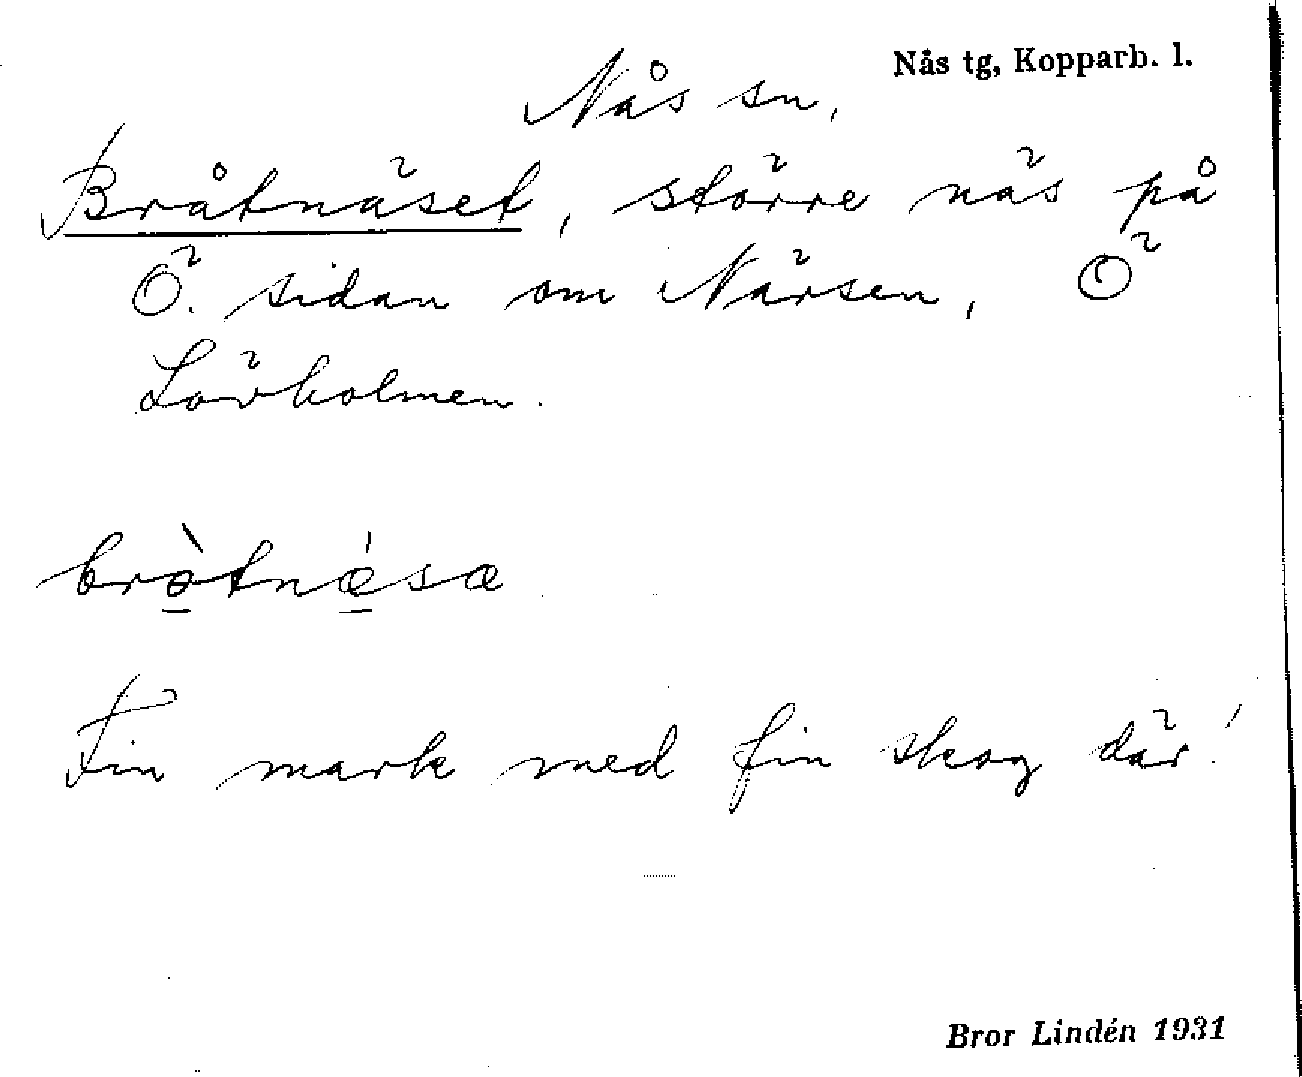 Nås tg, Kopparb. l.
Nås sn,
Bråtnäset, större näs på
Ö. sidan om Närsen, Ö
Lövholmen.
brò̱tnǽ̱sæ
Fin mark med fin skog där!
Bror Lindén 1931